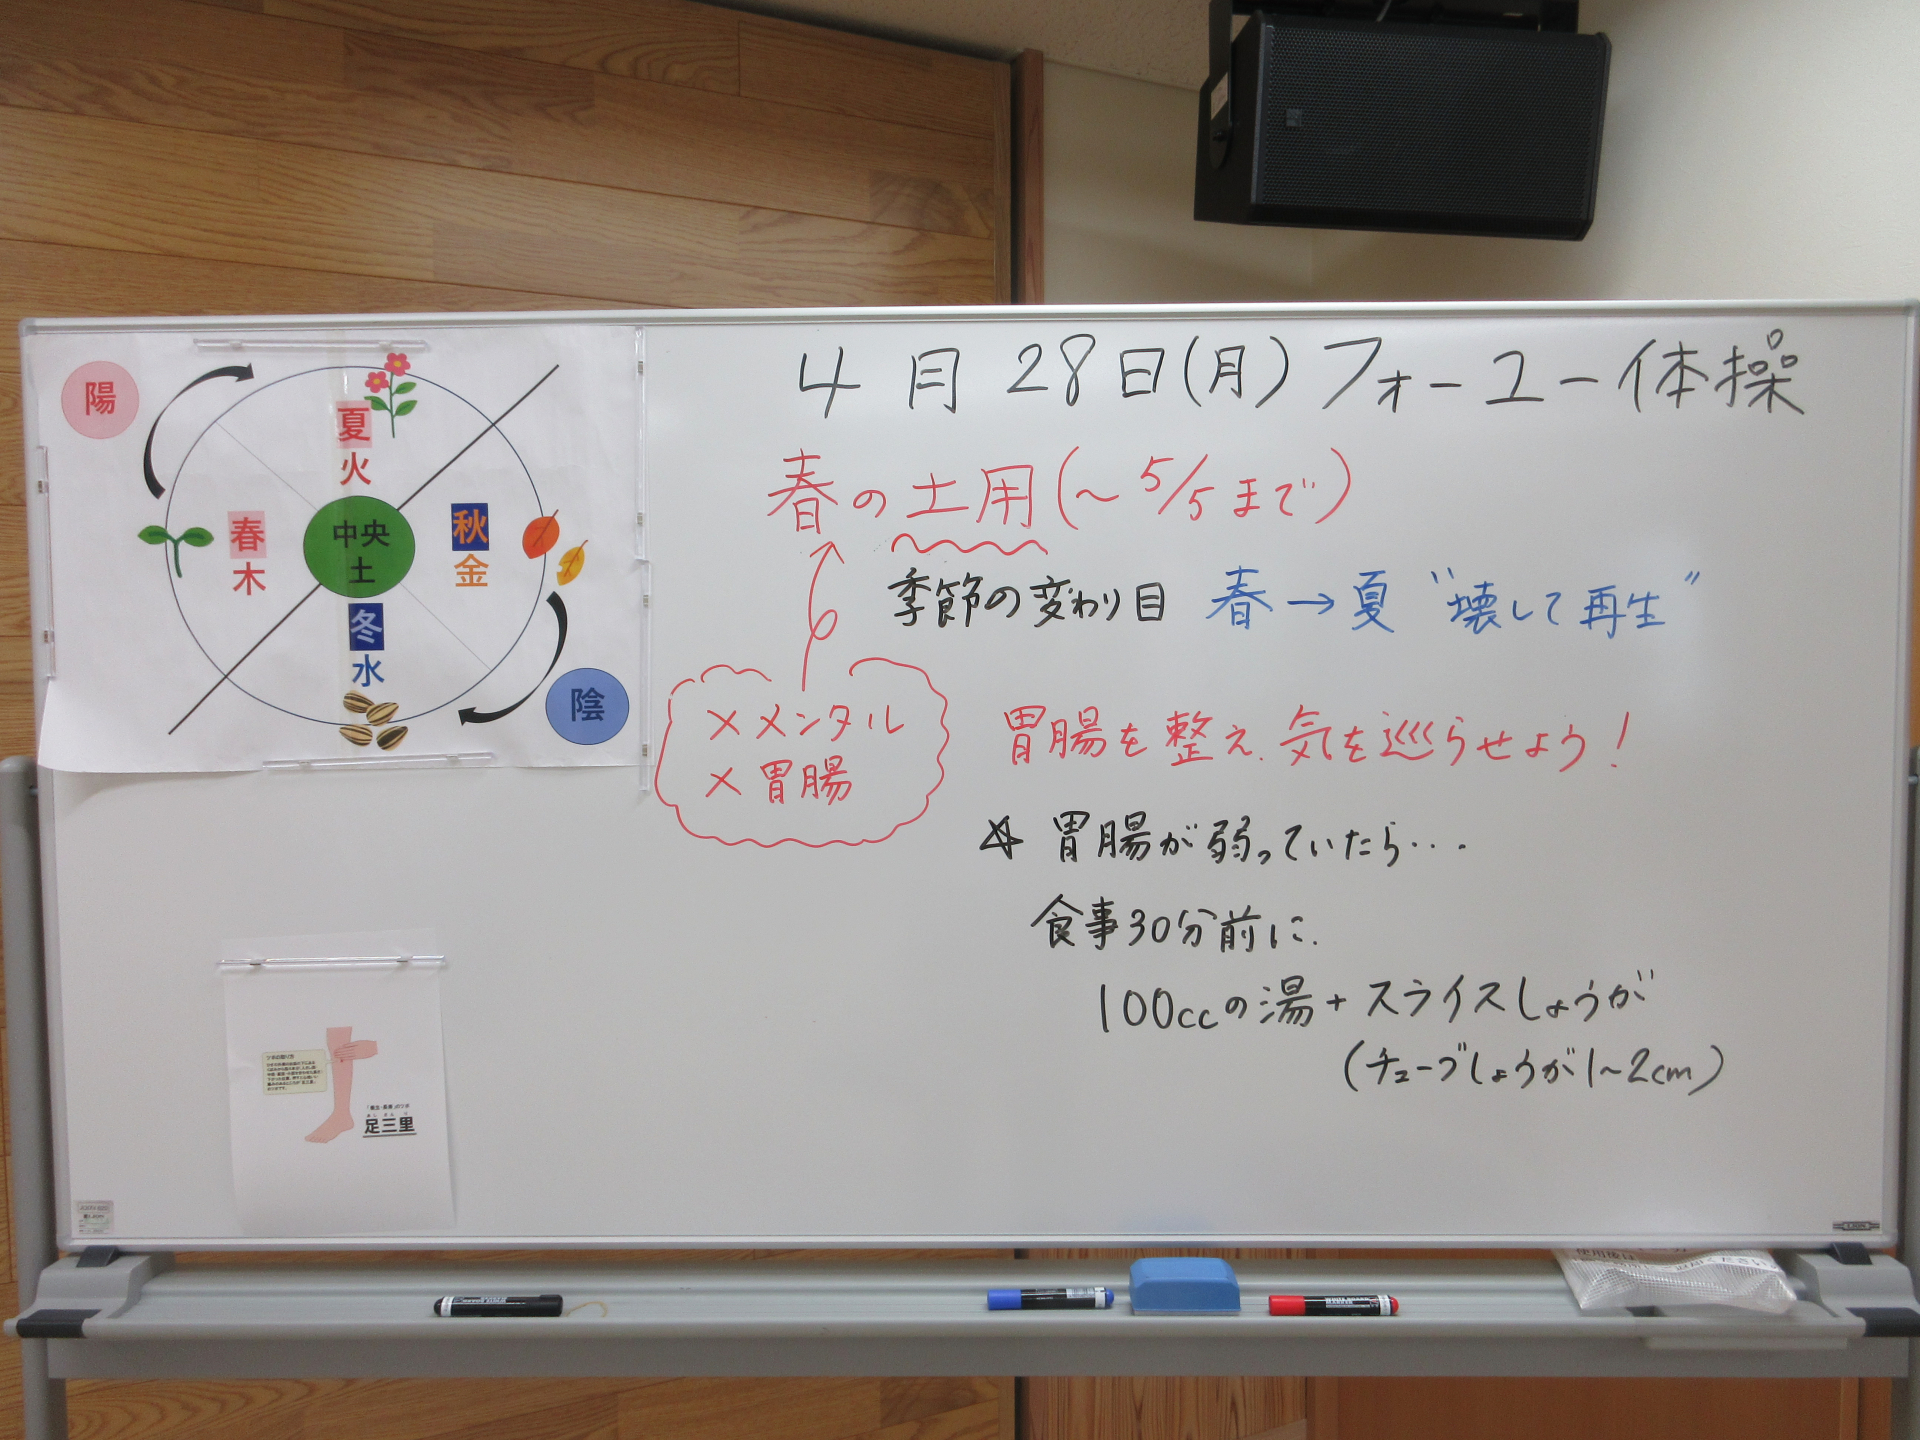 4月28日(月)フォーユー体操
春の土用(～5/5まで)
季節の変わり目 春→夏 "壊して再生"
×メンタル
×胃腸
胃腸を整え、気を巡らせよう!
☆ 胃腸が弱っていたら...
食事30分前に、
100ccの湯+スライスしょうが
(チューブしょうが1~2cm)
陽
夏
火
春
木
中央
土
秋
金
冬
水
陰
足三里
使用後は